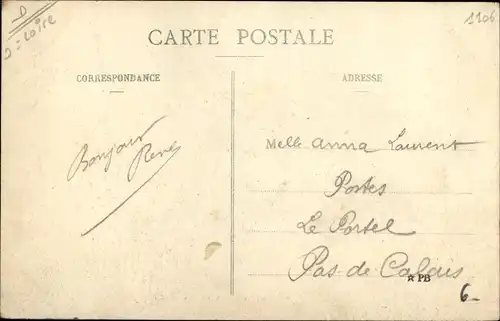 D
D = Loire
1106
CARTE POSTALE
CORRESPONDANCE
ADRESSE
Bonjour
René
Melle Anna Laurent
Postes
Le Portel
Pas de Calais
☆ PB
6-